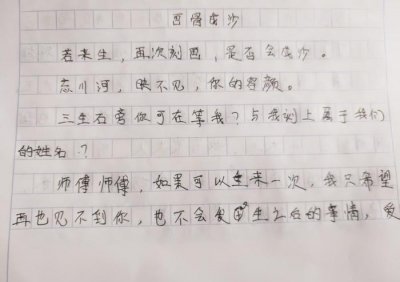 画骨南沙
若来生，再次刻画，是否会南沙。
忘川河，映不见，你的容颜。
三生石旁你可在等我？与我刻上属于我们
的姓名？
师傅师傅，如果可以重来一次，我只希望
再也见不到你，也不会发生之后的事情，爱